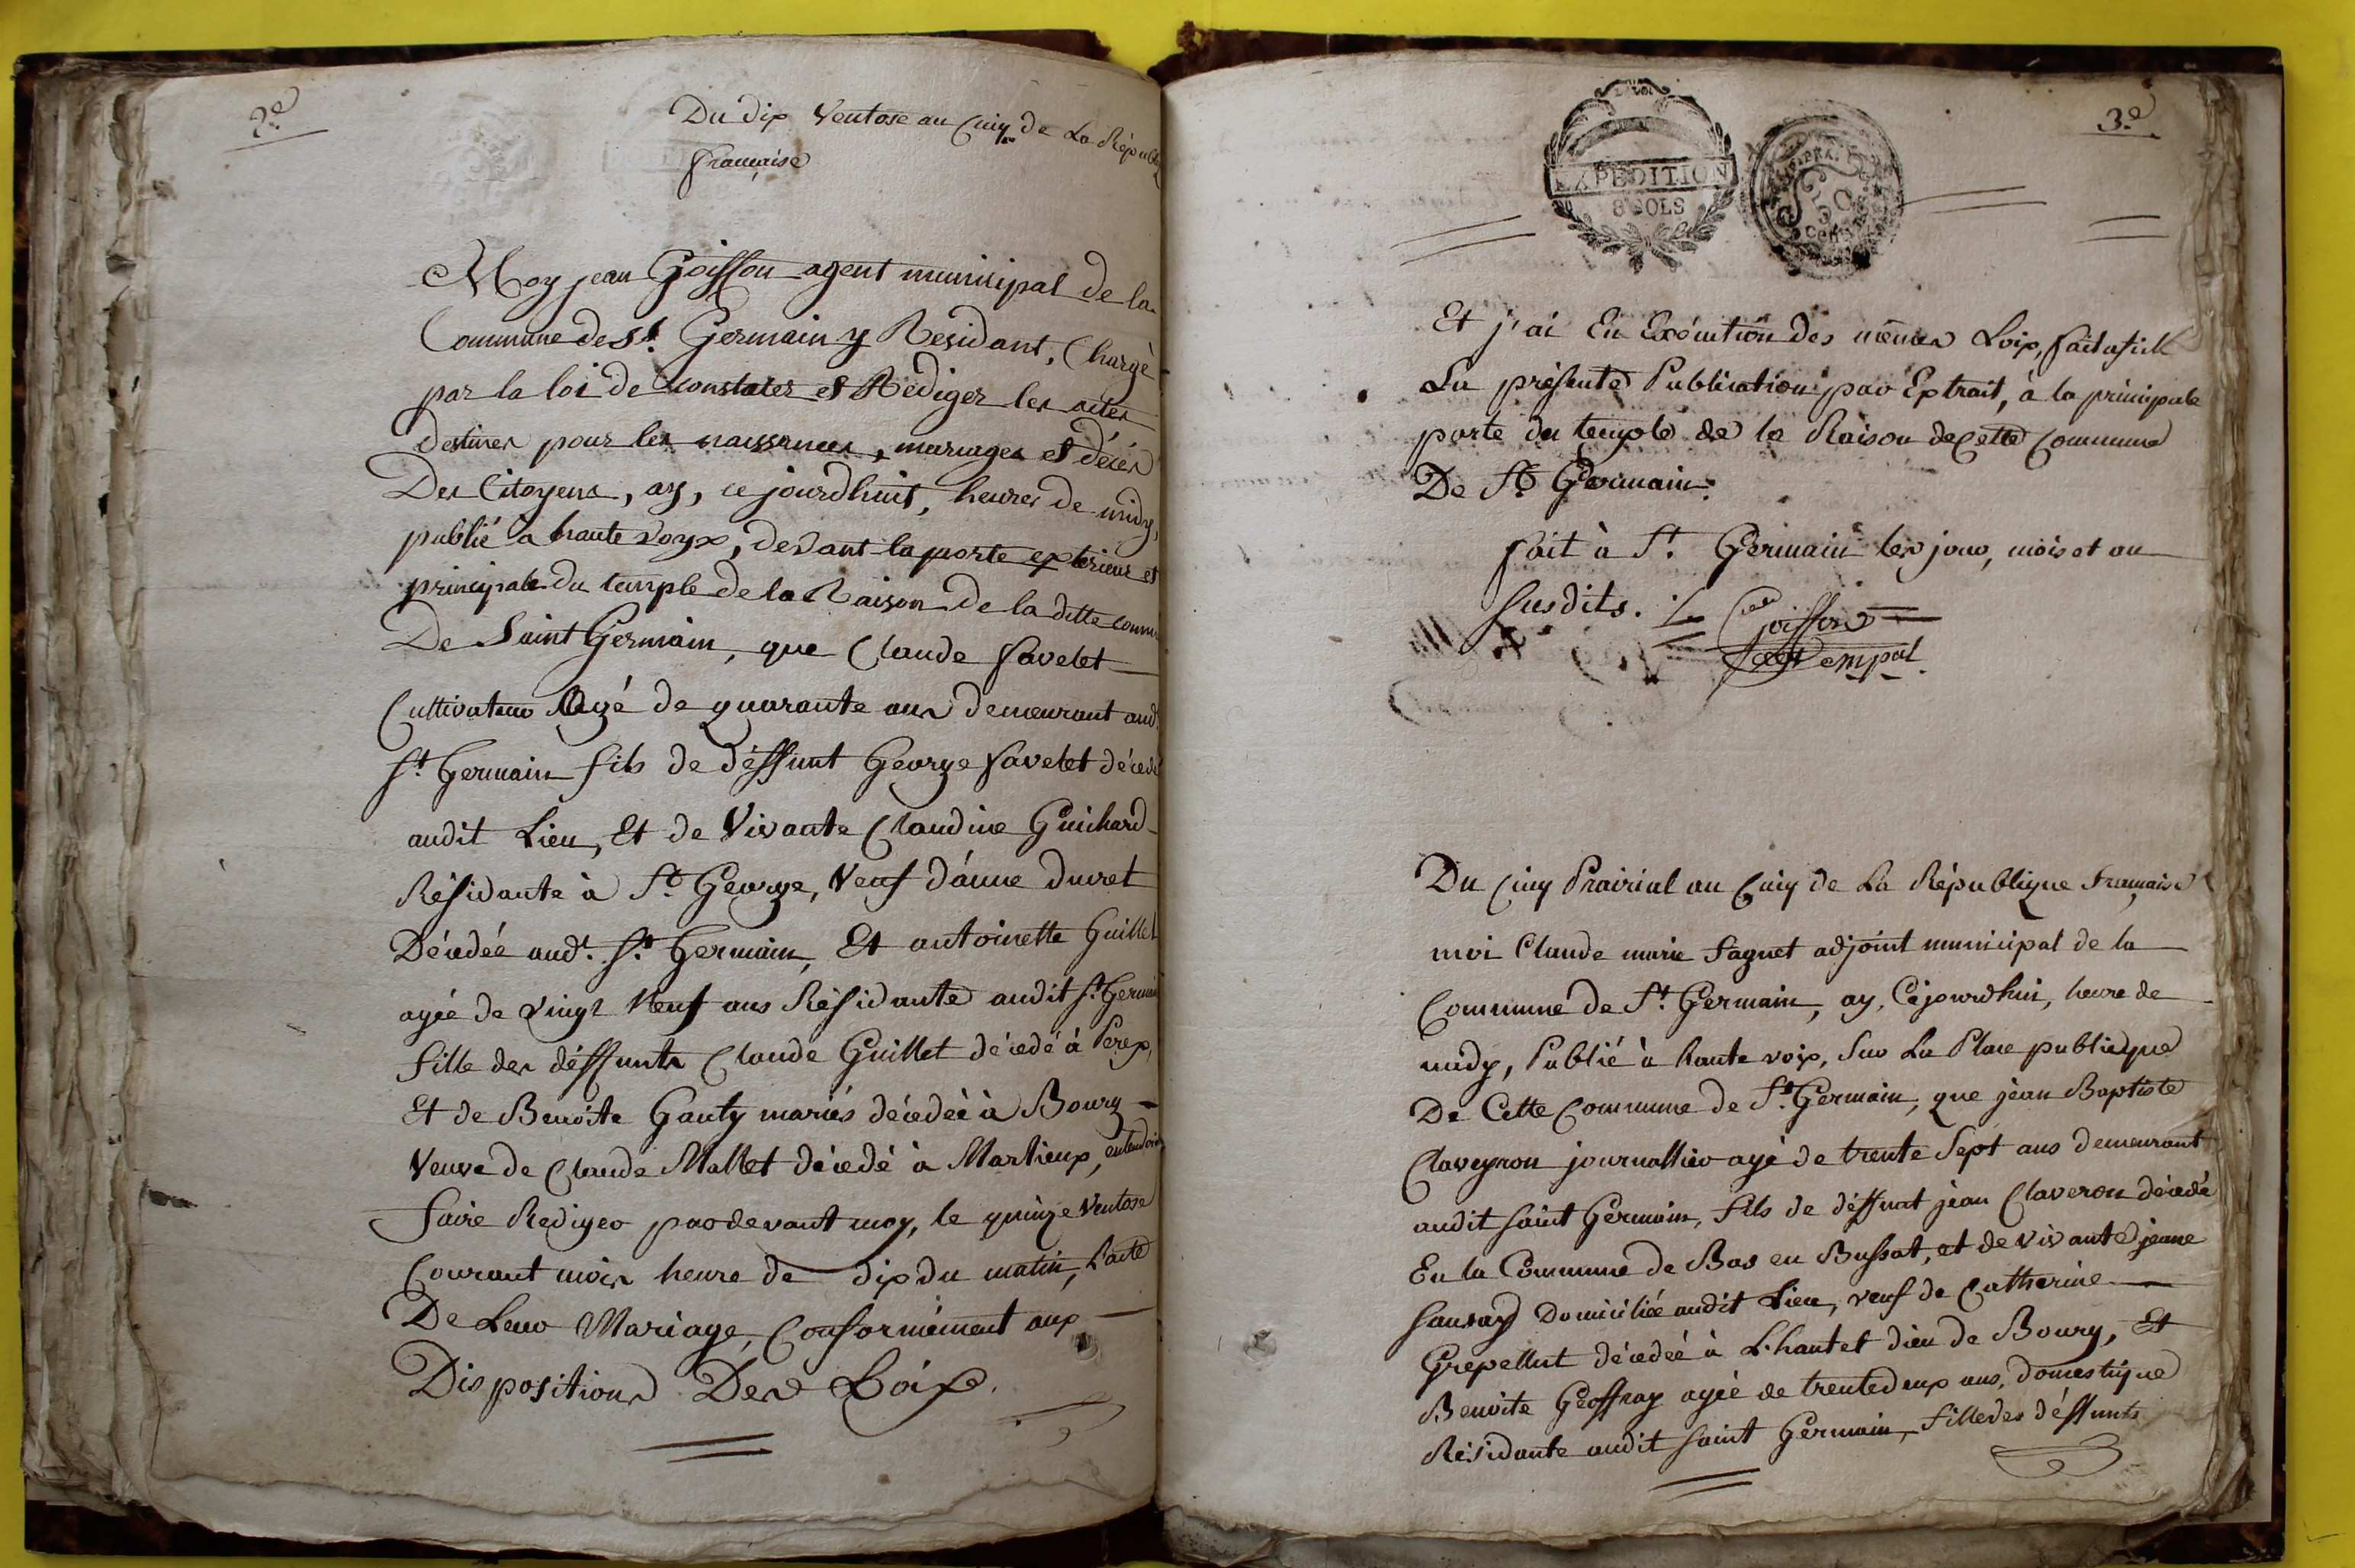 2e
Du dix Ventose an Cinq de La Républ
française
Moy jean Goiffon agent municipal de la
Commune de St. Germain y Residant, Chargé
par la loi de constater et Rédiger les actes
destines pour les naissances, mariages et décés
Des Citoyens, ay, ce jourdhuit, heures de midy,
publié a haute voyx, devant la porte exterieur et
principale du temple de la Raison de la ditte comm
De Saint Germain, que Claude favelet
Cultivateur Agé de quarante ans demeurant aud
St Germain fils de déffunt George favelet décedé
audit Lieu, Et de Vivante Claudine Guichard
Résidante à St. George, Veuf d'anne duvret
Décédée audt. St. Germain, Et antoinette Guillet
agée de vingt Neuf ans Résidante audit St. Germain
fille des déffunts Claude Guillet décedé à Perex,
Et de Benoite Gauty mariés décedéé à Bourg
Veuve de Claude Mallet décedé à Martieux, entendoir
faire Rediger pardevant moy, le quinze Ventose
Courant mois heure de dix du matin, L'acte
De Leur Mariage, Conformément aux
Dispositions Des Loix.
3.e
EXPEDITION
8 SOLS
50
CENT
Et j'ai En Exécution des mêmes Loix, fait afiché
La présente Publication par Extrait, à la principale
porte du temple de la Raison de Cette Commune
De St. Germain.
fait à St. Germain les jour, mois et an
susdits. Goiffon
agt mpal.
Du Cinq Prairial an Cinq de La République française
moi Claude marie faguet adjoint municipal de la
Commune de St. Germain, ay, Cejourdhui, heure de
midy, Publié à haute voix, sur La Place publicque
De Cette Commune de St. Germain, que jean Baptiste
Claveyron journallier agé de trente Sept ans demeurant
audit saint Germain, fils de déffunt jean Claveron décedé
En la Commune de Bas en Bassat, et de vivante jeanne
sauvay Domiciliée audit Lieu, veuf de Catherine
Grepellut décedéé à L'hautet dieu de Bourg, Et
Benoite Geoffray agée de trentedeux ans, domestique
Résidante audit saint Germain, filledes déffunts